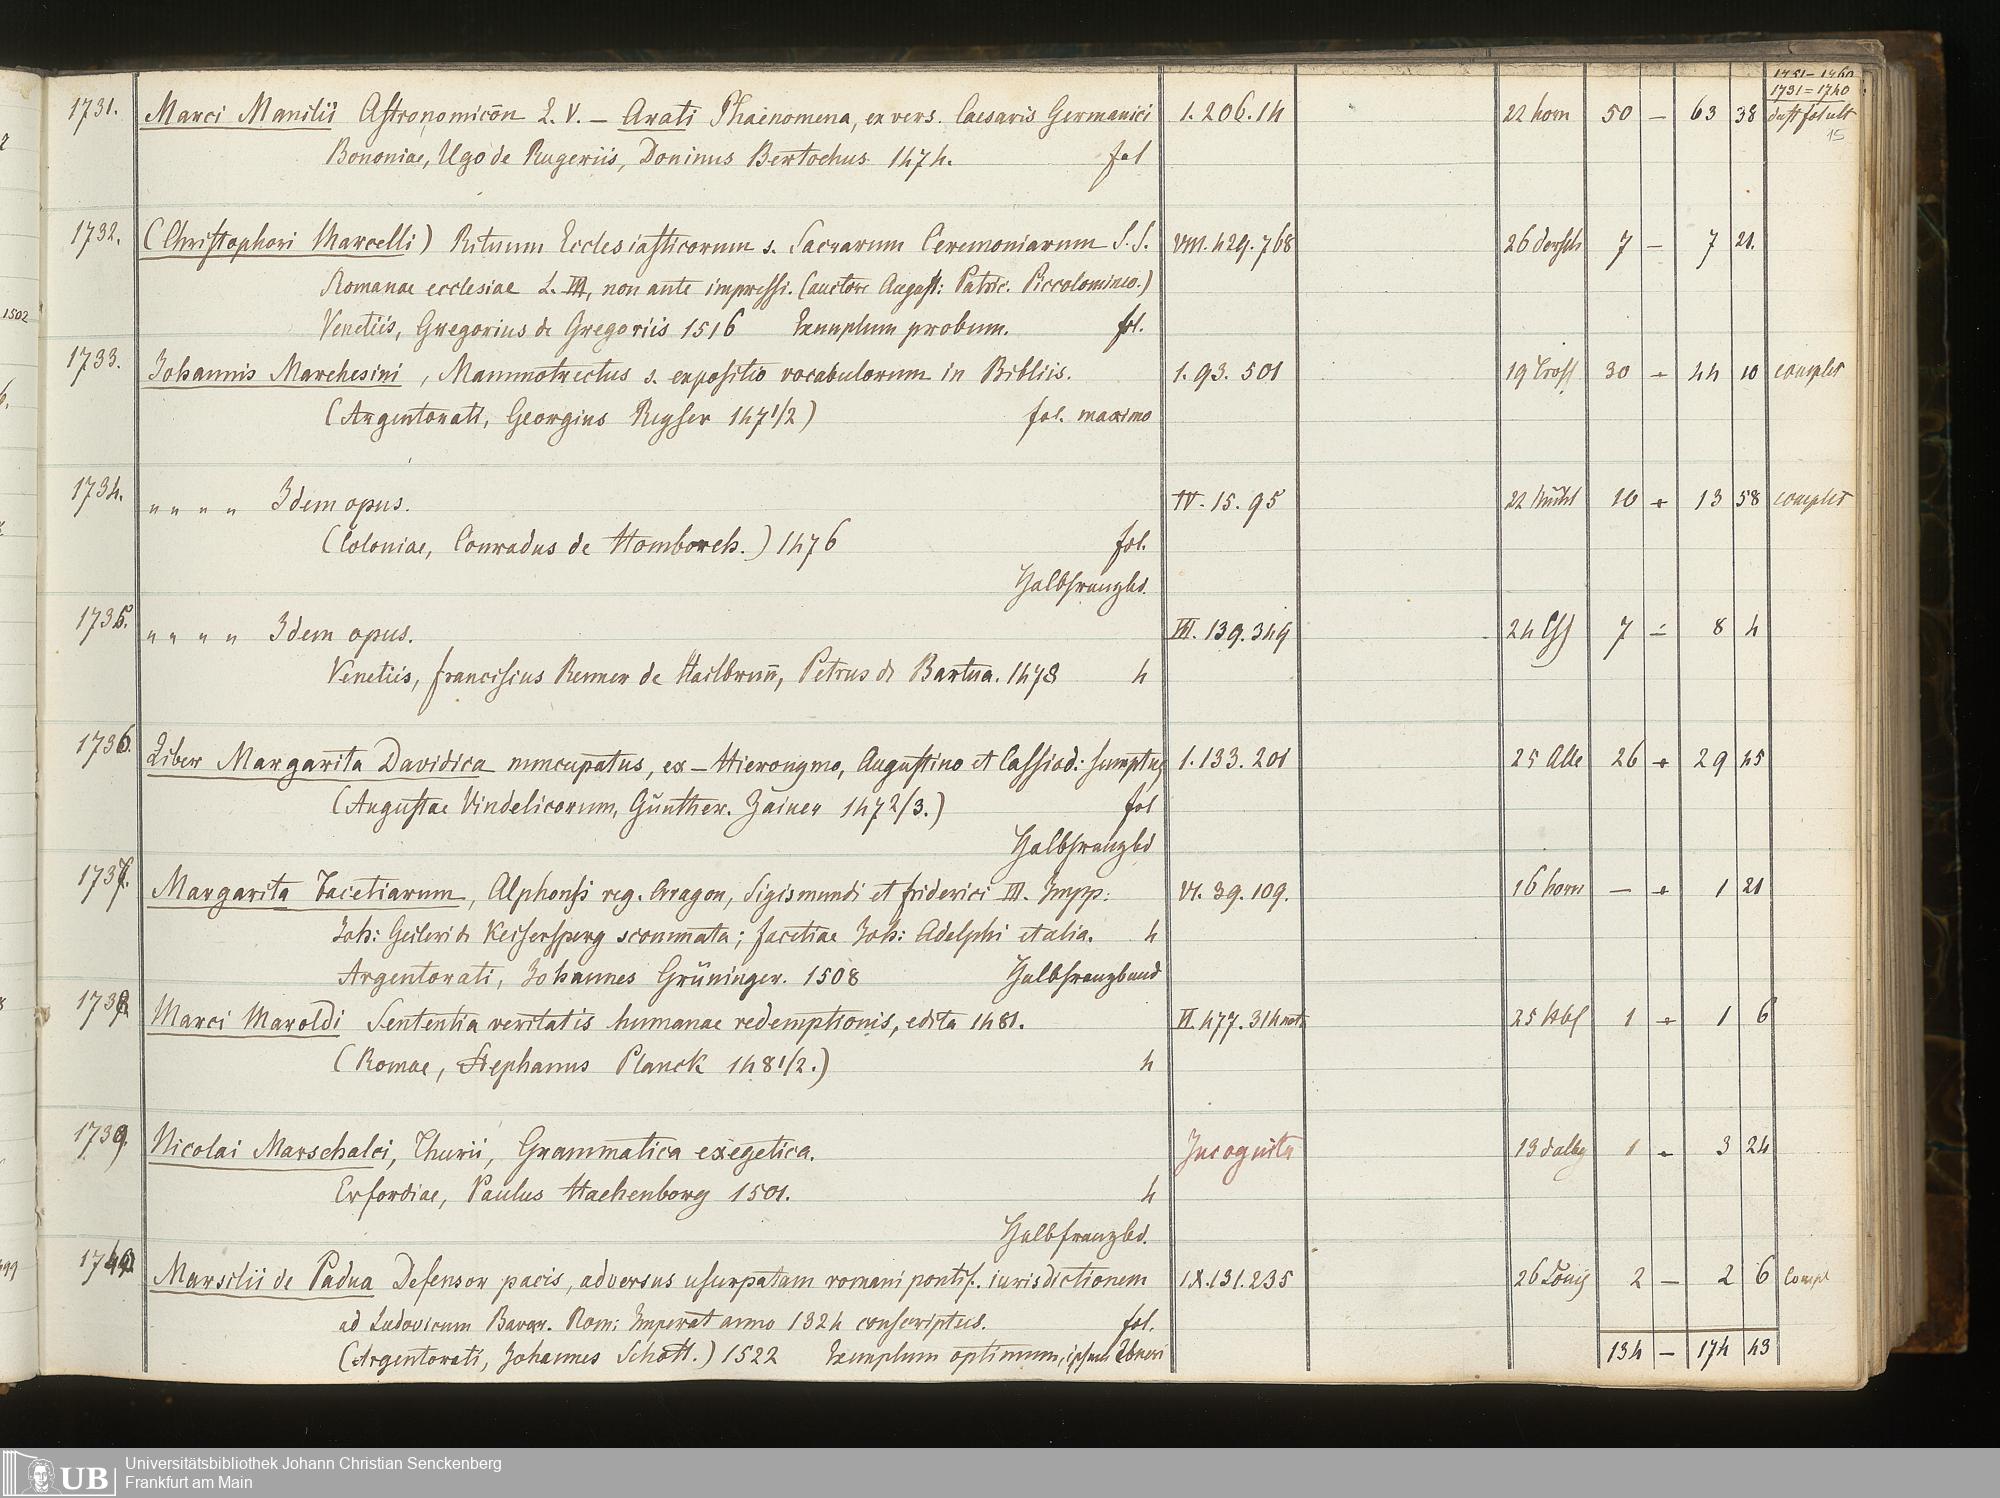 1731=1740
1731. Marci Manilii Astronomicōn L. V. – Arati Phaenomena, ex vers. Caesaris Germanici 1. 206. 14 22 horn 50 – 63 38
15
Bononiae, Ugo de Rugeriis, Doninus Bertochus 1474. fol
1732. (Christophori Marcelli) Rituum Ecclesiasticorum s. Sacrarum Ceremoniarum S. S. VIII. 429. 768 26 7 – 7 21.
Romanae ecclesiae L. III, non ante impressi. (auctore August: Patric. Piccolomineo.)
Venetiis, Gregorius de Gregoriis 1516 Exemplum probum. fol.
1502
1733. Johannis Marchesini, Mammotrectus s. expositio vocabulorum in Bibliis. 1. 93. 501 19 30 – 44 10 complet
(Argentorati, Georgius Reyser 1471/2) fol. maximo
1734. " " " " Idem opus. IV. 15. 95 22 10 – 13 58 complet
(Coloniae, Conradus de Homborch.) 1476 fol.
Halbfranzbd.
1735. " " " " Idem opus. III. 139. 349 24 7 – 8 4
Venetiis, franciscus Renner de Hailbrun̄, Petrus de Bartua. 1478 4
1736. Liber Margarita Davidica nuncupatus, ex – Hieronymo, Augustino et Cassiod: sumptus 1. 133. 201 25 Alle 26 – 29 45
(Augustae Vindelicorum, Günther. Zainer 1472/3.) fol
Halbfranzbd
1737. Margarita Facetiarum, Alphonsi reg. Aragon, Sigismundi et friderici III. Impp: VI. 39. 109. 16 horn – – 1 21
Joh: Geileri de Keisersperg scommata; facetiae Joh: Adelphi et alia. 4
Argentorati, Johannes Grüninger. 1508 Halbfranzband
1738. Marci Maroldi Sententia veritatis humanae redemptionis, edita 1481. VI. 477. 314 not. 25 1 – 1 6
(Romae, Stephanus Planck 1481/2.) 4
1739. Nicolai Marschalci, Thurii, Grammatica exegetica. Incognita 13 dalbg 1 – 3 24
Erfordiae, Paulus Hachenborg 1501. 4
Halbfranzbd.
1740. Marsilii de Padua Defensor pacis, adversus usurpatam romani pontif. iurisdictionem IX. 131. 235 26 König 2 – 2 6 Compl
ad Ludovicum Bavar. Rom: Imperat anno 1324 conscriptus. fol.
(Argentorati, Johannes Schott.) 1522 Exemplum optimum, ipsius Ebneri
134 – 174 43
UB
Universitätsbibliothek Johann Christian Senckenberg
Frankfurt am Main